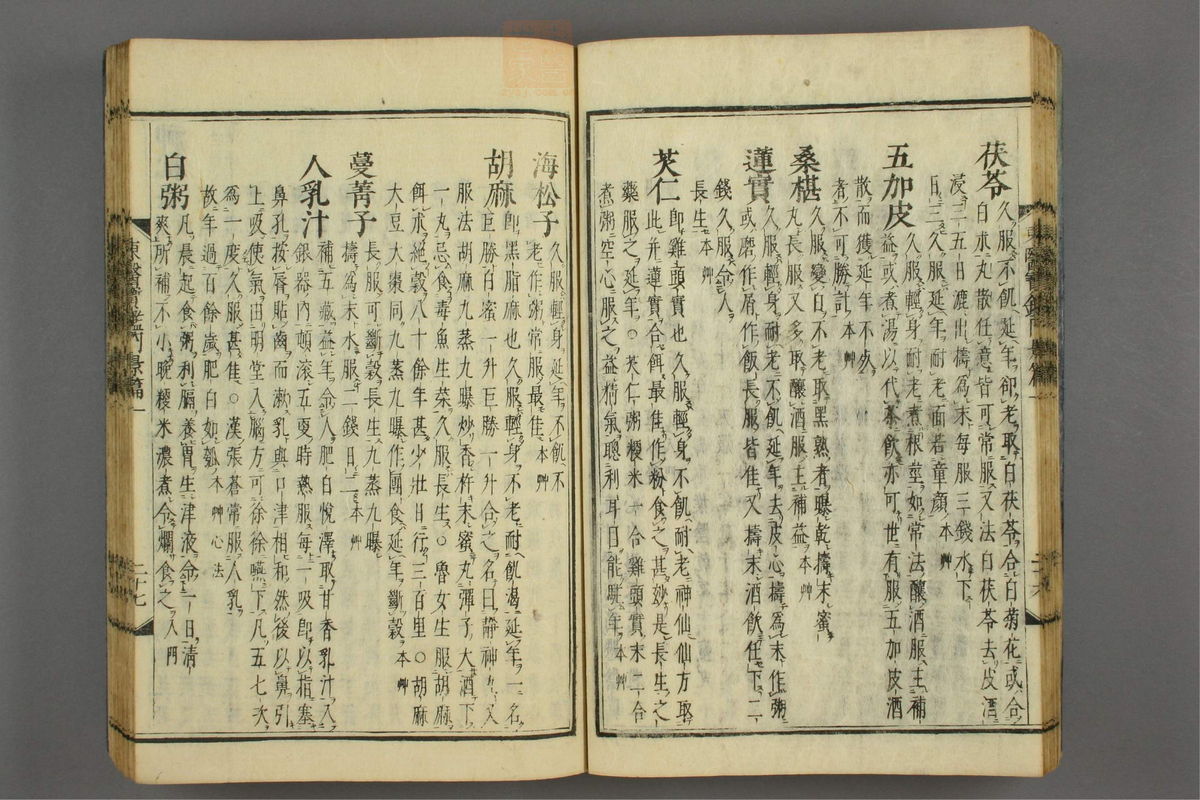 茯苓 久服不飢延年却老取白茯苓合白菊花或合
白朮丸散任意皆可常服又法白茯苓去皮酒
浸三五日漉出擣爲末每服三錢水下
日三久服延年耐老面若童顏 本艸
五加皮 久服輕身耐老煮根莖如常法釀酒服主補
益或煮湯以代茶飲亦可世有服五加皮酒
散而獲延年不
者不可勝計 本艸
桑椹 久服變白不老取黑熟者曝乾擣末蜜
丸長服又多取釀酒服主補益 本艸
蓮實 久服輕身耐老不飢延年去皮心擣爲末作粥
或磨作屑作飯長服皆佳又擣末酒飲任下二
錢久服令人
長生 本艸
芡仁 卽雞頭實也久服輕身不飢耐老神仙仙方取
此幷蓮實合餌最佳作粉食之甚妙是長生之
藥服之延年○芡仁粥粳米一合雞頭實末二合
煮粥空心服之益精氣聰利耳目能 年 本艸
海松子 久服輕身延年不飢不
老作粥常服最佳 本艸
胡麻 卽黑脂麻也久服輕身不老耐飢渴延年一名
巨勝白蜜一升巨勝一升合之名曰靜神丸又
服法胡麻九蒸九曝炒香杵末蜜丸彈子大酒下
一丸忌食毒魚生菜久服長生○魯女生服胡麻
餌朮絕穀八十餘年甚少壯日行三百里○胡麻
大豆大棗同九蒸九曝作團食延年斷穀 本艸
蔓菁子 長服可斷穀長生九蒸九曝
擣爲末水服二錢日二 本艸
人乳汁 補五藏益年令人肥白悅澤取甘香乳汁入
銀器內頓滾五更時熱服每一吸卽以指塞
鼻孔按唇貼齒而漱乳與口津相和然後以鼻引
上吸使氣由明堂入腦方可徐徐嚥下凡五七次
爲一度久服甚佳○漢張蒼常服人乳
故年過百餘歲肥白如瓠 本艸 心法
白粥 凡晨起食粥利膈養胃生津液令一日清
爽所補不小晚粳米濃煮令爛食之 入門
東醫寶鑑內景篇一
二十七